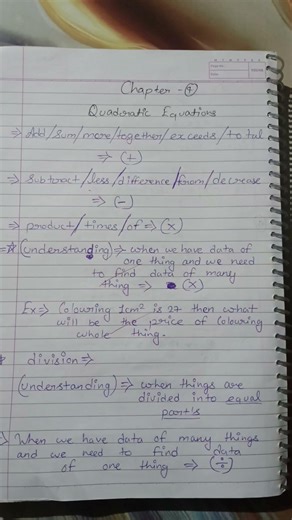 Chapter - 4
Quadratic Equations
⇒ Add/sum/more/together/exceeds/total
⇒ (+)
⇒ Subtract/less/difference/from/decrease
⇒ (-)
⇒ product/times/of ⇒ (x)
(understanding) ⇒ when we have data of
one thing and we need
to find data of many
thing ⇒ (x)
Ex ⇒ Colouring 1cm² is 27 then what
will be the price of colouring
whole thing.
division ⇒
(understanding) ⇒ when things are
divided into equal
part's
When we have data of many things
and we need to find data
of one thing ⇒ (÷)